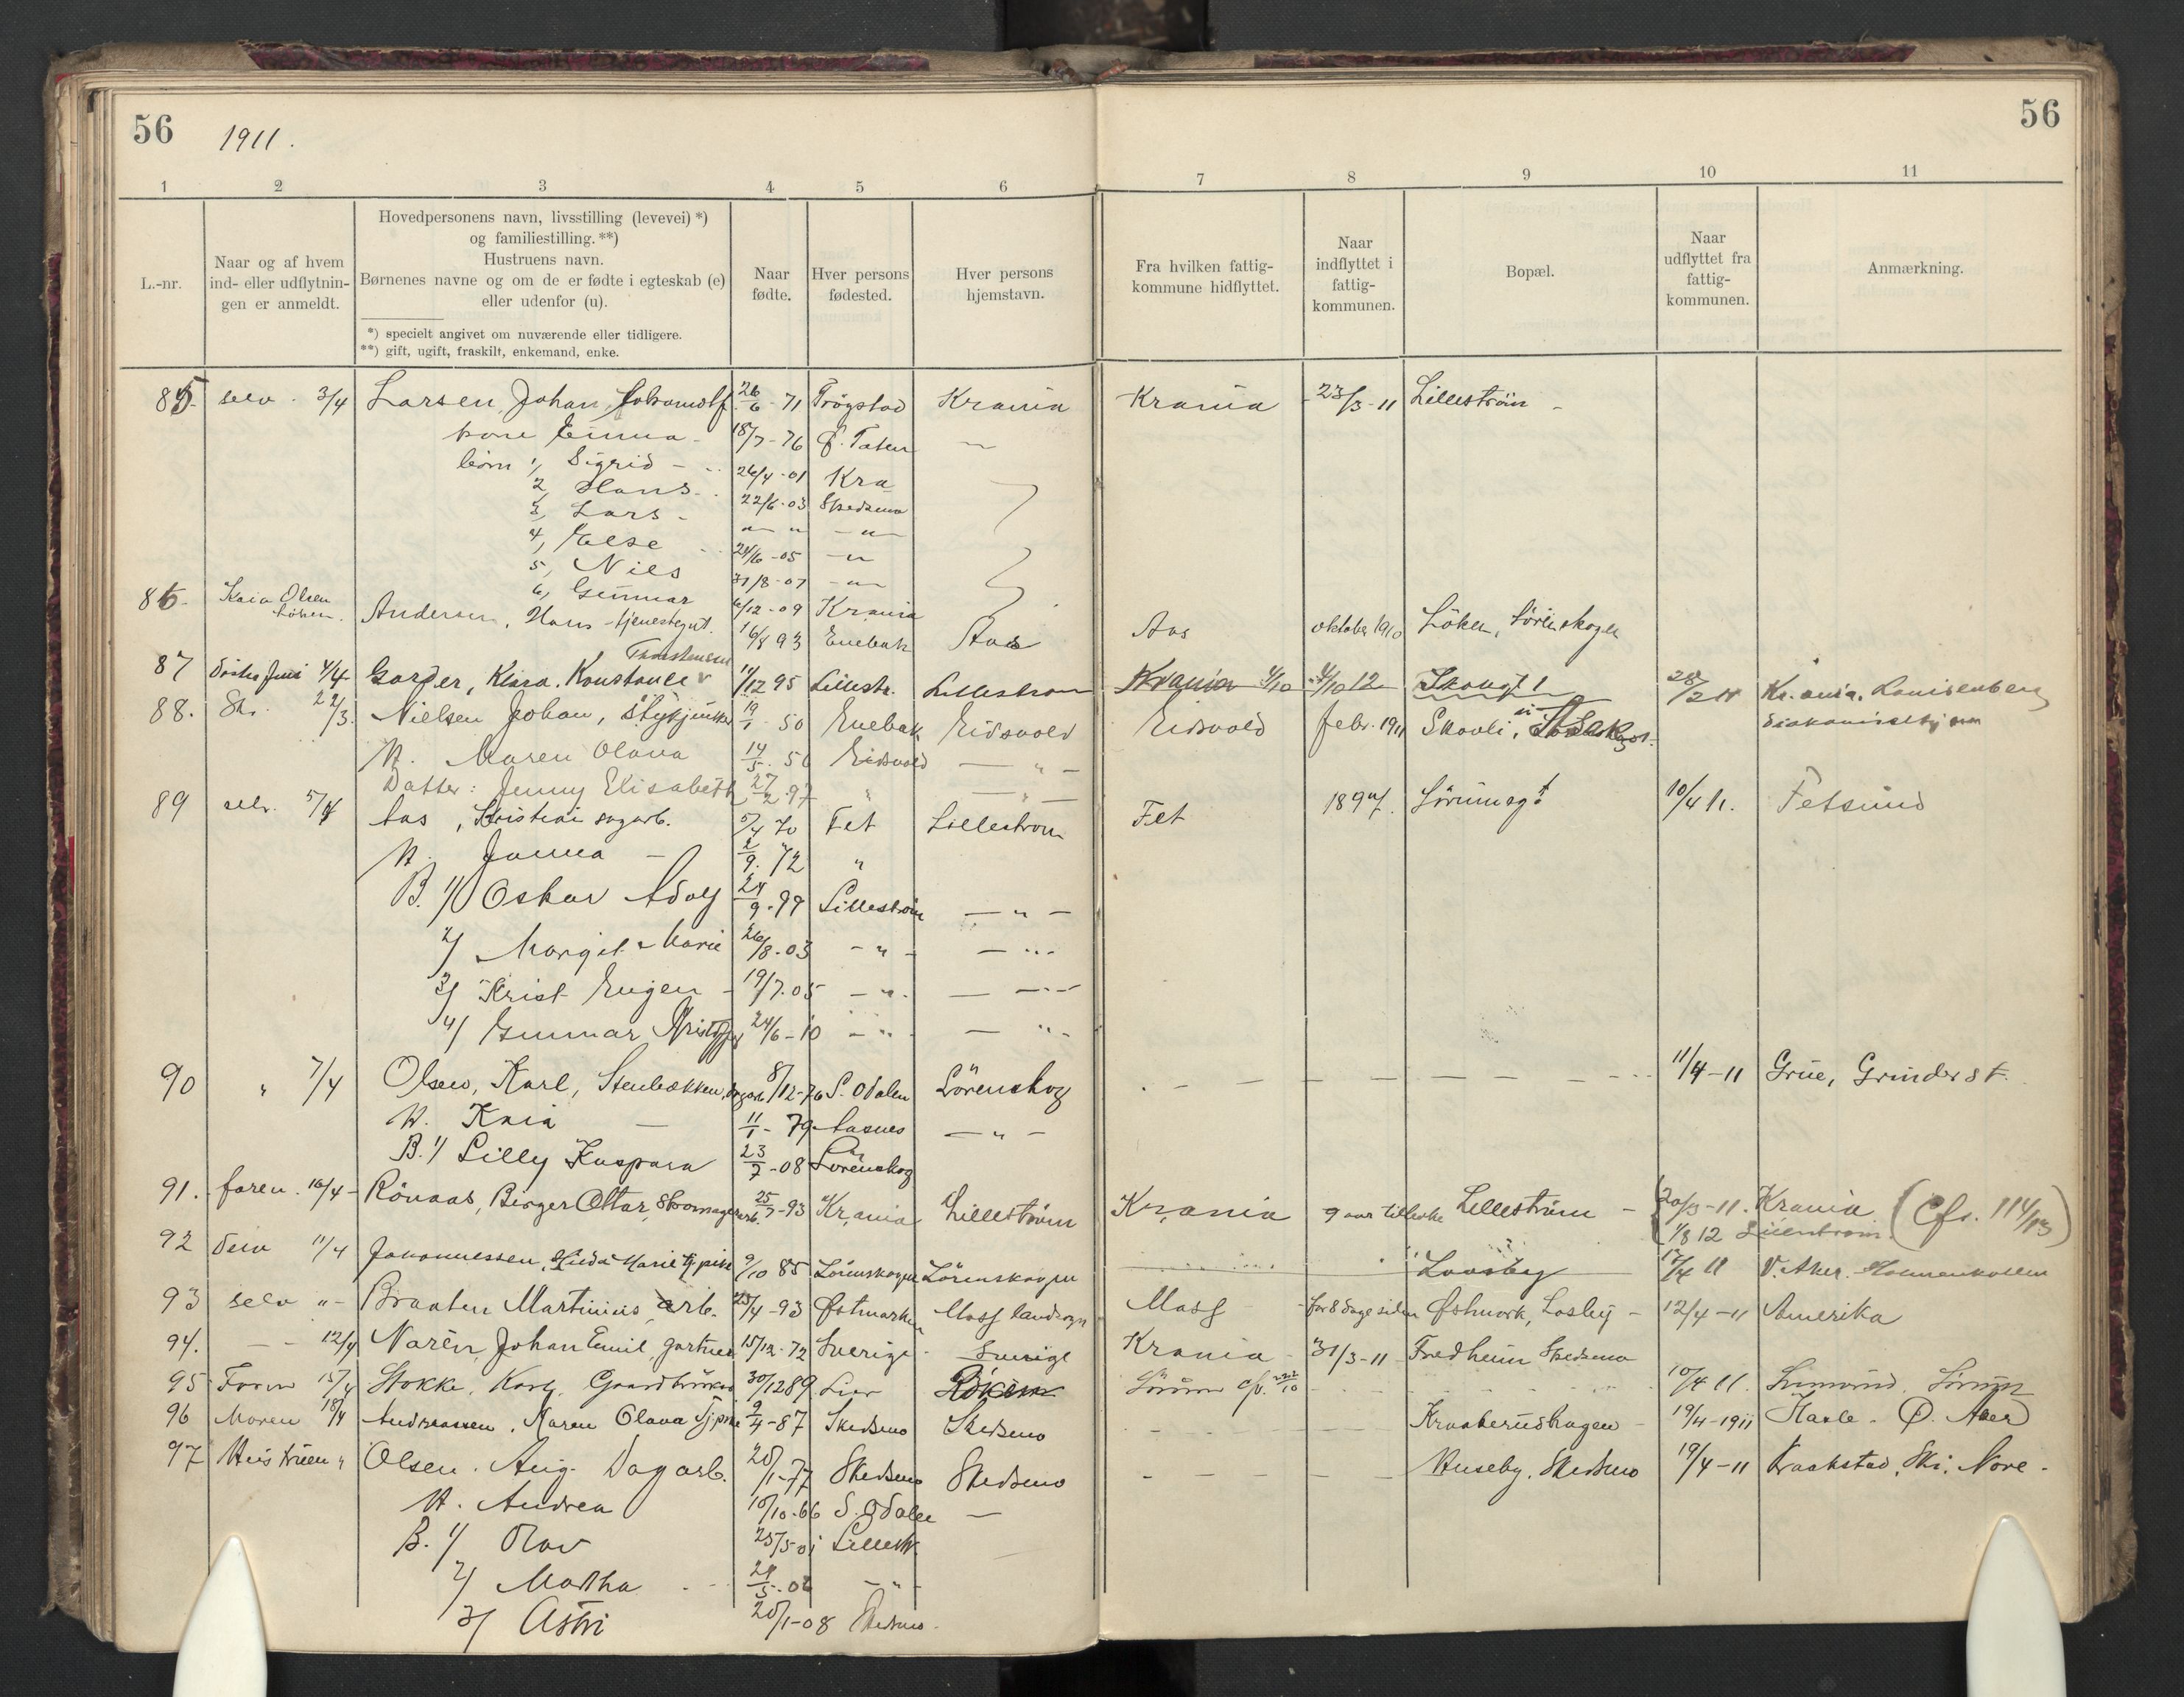 56
1911.
56
1 2 3 4 5 6 7 8 9 10 11
L.-nr.
Naar og af hvem
ind- eller udflytnin-
gen er anmeldt.
Hovedpersonens navn, livsstilling (levevei) *)
og familiestilling. **)
Hustruens navn.
Børnenes navne og om de er fødte i egteskab (e)
eller udenfor (u).
*) specielt angivet om nuværende eller tidligere.
**) gift, ugift, fraskilt, enkemand, enke.
Naar
fødte.
Hver persons
fødested.
Hver persons
hjemstavn.
Fra hvilken fattig-
kommune hidflyttet.
Naar
indflyttet i
fattig-
kommunen.
Bopæl.
Naar
udflyttet fra
fattig-
kommunen.
Anmærkning.
85. selv. 3/4 Larsen, Johan 26/6-71 Trögstad Krania Krania 23/3-11 Lilleström -
kone Emma - 18/7-76 Ø. Toten —
börn 1, Sigrid - 24/4-01 Kra
2, Hans 22/6-03 Skedsmo
3, Lars - " " - " -
4, Else 24/6-05 - "
5, Nils 31/8-07 - " -
6, Gunnar 6/12-09 Krania
86. Kaia Olsen Andersen, Hans - tjenestegut. 16/8 93 Enebak Aas Aas oktober 1910 Löken, Lörenskogen
Thorstensen
87 4/4 Garder, Klara Konstanse 11/12 95 Lillestr. Lillestrom Krania 4/10 4/10 12 Skougt 1 28/2 11 Kr.ania. Louisenberg
88. Skr. 22/3. Nielsen Johan, 19/1 50 Enebak Eidsvold Eidsvold febr. 1911 Skovli,
H. Maren Olava 14/5. 50 Eidsvold — " -
Datter: Jenny Elisabeth 27/2 97 " — " —
89 selv. 5/4 Aas, Kristian sagarb. 5/4 70 Fet Lillestrom Fet 1897. Sörumsgt 10/4 11. Fetsund
H. Janna - 2/9. 72 "
B. 1/ Oskar Adolf 24/9-99 Lilleström — " -
2/ Margit Marie 26/8-03 - " - — " -
3/ Krist Eugen - 19/7.05 - " - — " -
4/ Gunnar Kristoffer 24/6-10 - " - — " -
90 " 7/4 Olsen, Karl, Stenbækken, dagarb. 8/12-76 S. Odalen Lörenskog 11/4-11 Grue, Grinder st.
H. Kaia — 11/1-79 Aasnes — " -
B. 1/ Lilly Kaspara 23/7-08 Lörenskog
91. faren. 10/4- Rönaas, Birger Ottar, 25/7-93 Kr,ania Lilleström Kr,ania 9 aar Lilleström - 20/3-11. Krania (Cfr. 114/13)
1/8 12 Lillestrom
92 11/4 Johannessen, Hilda Marie tj.pike 9/10 85 Lörenskogen Lörenskogen Loosby 12/4 11 V. Aker. Holmenkollen
93 selv "- Braaten Martinius, arb. 23/4-93 Østmarken Moss landsogn Moss - for 8 dage siden Østmark, Losby - 12/4-11 Amerika
94. - - 12/4 Norén, Johan Emil, gartner 15/12-72 Sverige - Sverige Krania - 31/3-11 Fredheim Skedsmo
95 Faren 15/4 Stokke, Karl, Gaardbruker 30/12 89 Lier Röken Sörum cfr. 10/4 11. Sörum
96 Moren 18/4 Andreassen, Karen Olava Tj.pike 9/4-87 Skedsmo Skedsmo Kraakerudhagen - 19/4-1911 Hasle. Ø. Aker
97 Hustruen " Olsen. Aug. Dagarb. 20/1-77 Skedsmo Skedsmo Huseby, Skedsmo 19/4-11 Kraakstad, Ski.
H. Andrea 10/10-66 S. Odalen —
B. 1/ Olav 25/5-01 Lillestr.
2/ Martha 29/5-06 - " -
3/ Astri 20/1-08 Skedsmo.